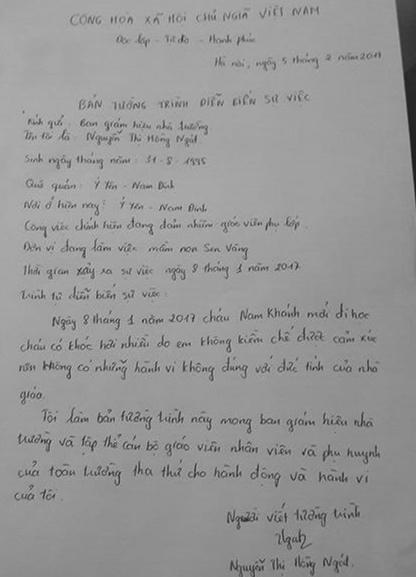 CỘNG HÒA XÃ HỘI CHỦ NGHĨA VIỆT NAM
Độc lập - Tự do - Hạnh phúc
Hà nội, ngày 5 tháng 2 năm 2017
BẢN TƯỜNG TRÌNH DIỄN BIẾN SỰ VIỆC
Kính gửi: Ban giám hiệu nhà trường
Tên tôi là: Nguyễn Thị Hồng Ngát
Sinh ngày tháng năm: 31-8-1995
Quê quán: Ý Yên - Nam Định
Nơi ở hiện nay: Ý Yên - Nam Định
Công việc chính hiện đang đảm nhiệm giáo viên phụ lớp.
Đơn vị đang làm việc mầm non Sen Vàng
Thời gian xảy ra sự việc ngày 8 tháng 1 năm 2017
Trình tự diễn biến sự việc:
Ngày 8 tháng 1 năm 2017 cháu Nam Khánh mới đi học
cháu có khóc hơi nhiều do em không kiềm chế được cảm xúc
nên không có những hành vi không đúng với đức tính của nhà
giáo.
Tôi làm bản tường trình này mong ban giám hiệu nhà
trường và tập thể cán bộ giáo viên nhân viên và phụ huynh
của toàn trường tha thứ cho hành động và hành vi
của tôi.
Người viết tường trình
Ngát
Nguyễn Thị Hồng Ngát.